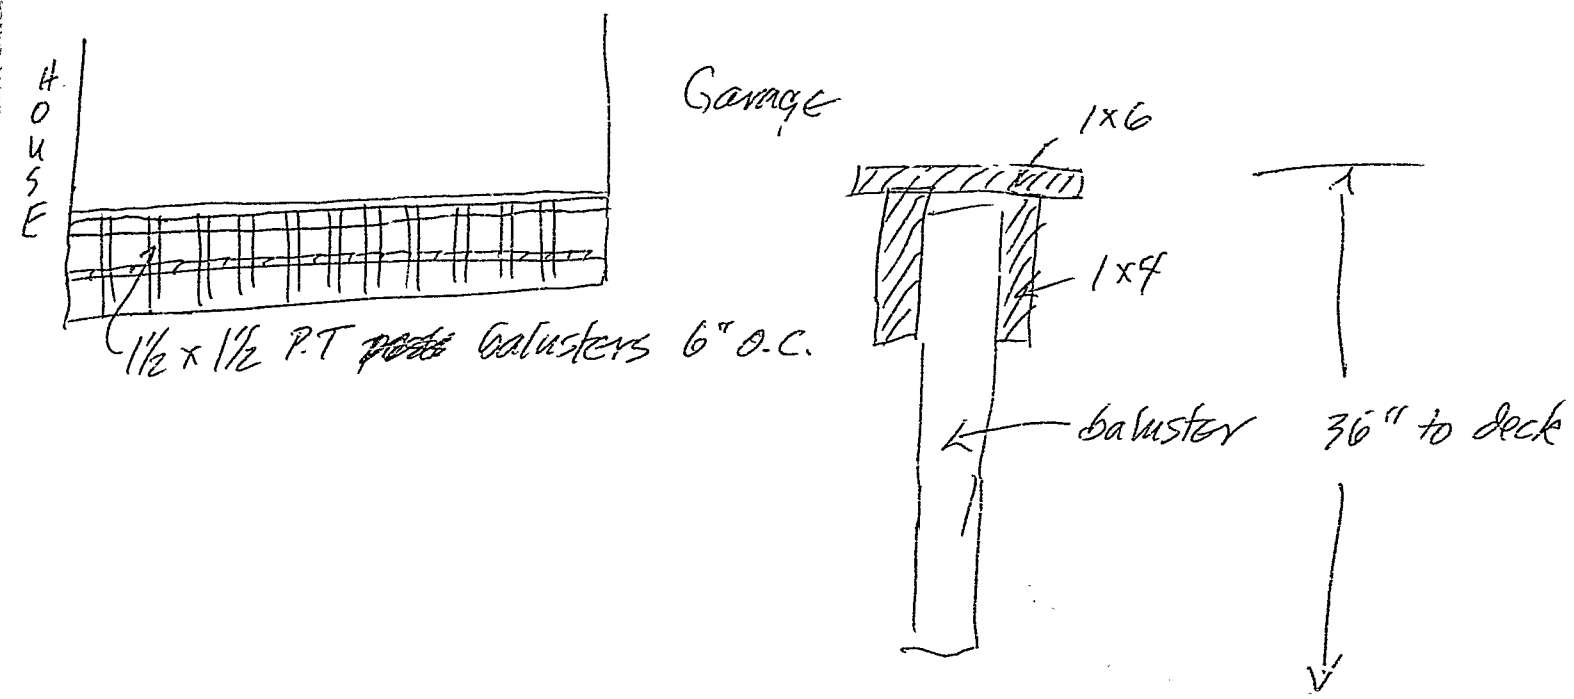 HOUSE
Garage
1x6
1x4
1½ x 1½ P.T balusters 6" O.C.
baluster
36" to deck